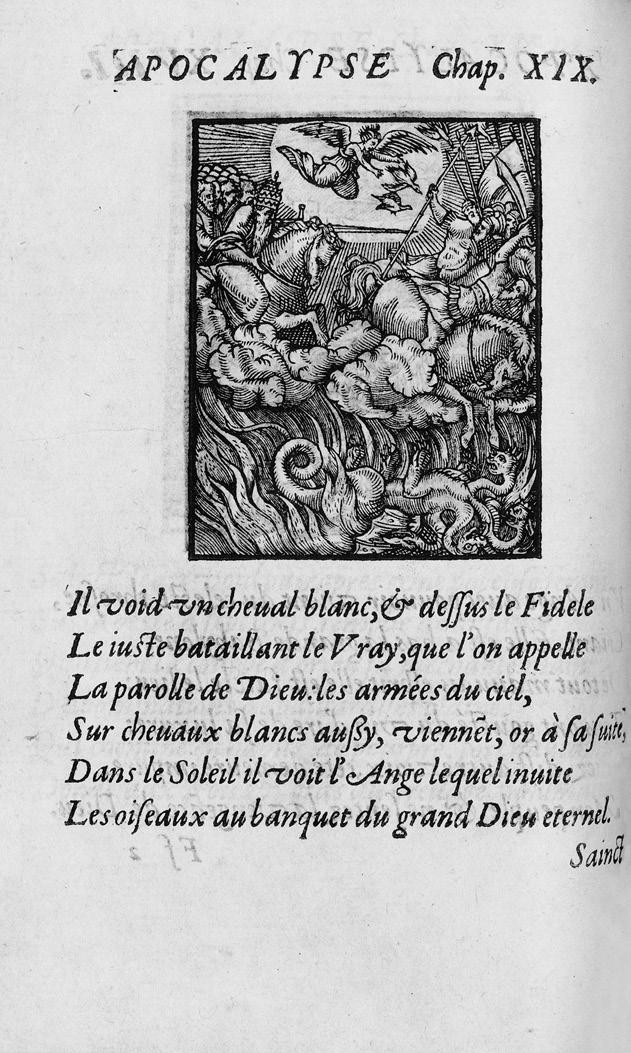 APOCALYPSE Chap. XIX.
Il void vn cheual blanc, & deſſus le Fidele
Le iuſte bataillant le Vray, que l'on appelle
La parolle de Dieu: les armées du ciel,
Sur cheuaux blancs auſſy, viennēt, or à ſa ſuite,
Dans le Soleil il voit l'Ange lequel inuite
Les oiſeaux au banquet du grand Dieu eternel.
Sainct